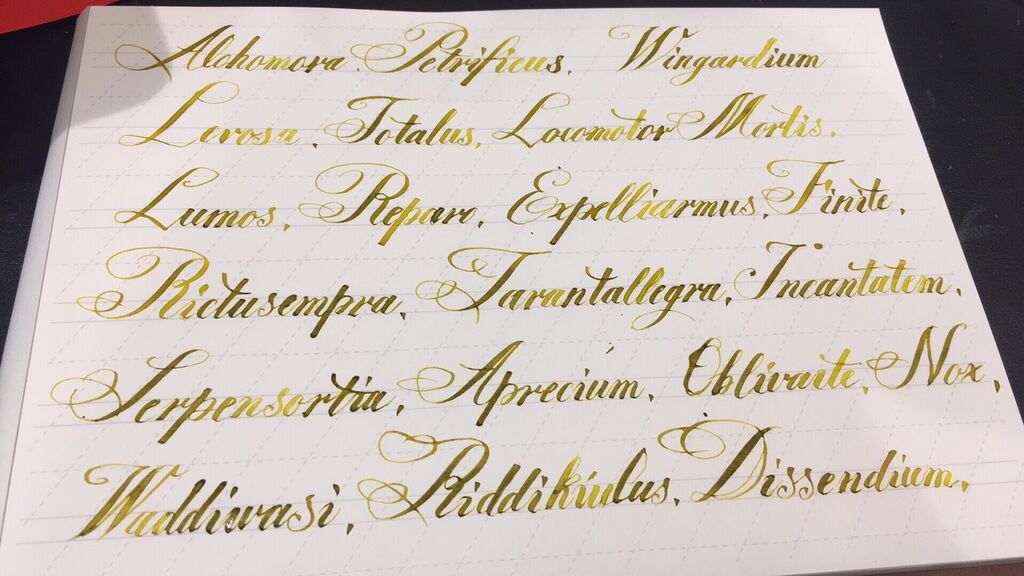 Alohomora. Petrificus. Wingardium
Levosa, Totalus, Locomotor Mortis.
Lumos, Reparo, Expelliarmus, Finite,
Rictusempra, Tarantallegra, Incantatem,
Serpensortia, Aprecium, Oblivaite, Nox,
Waddiwasi, Riddikiulus, Dissendium,